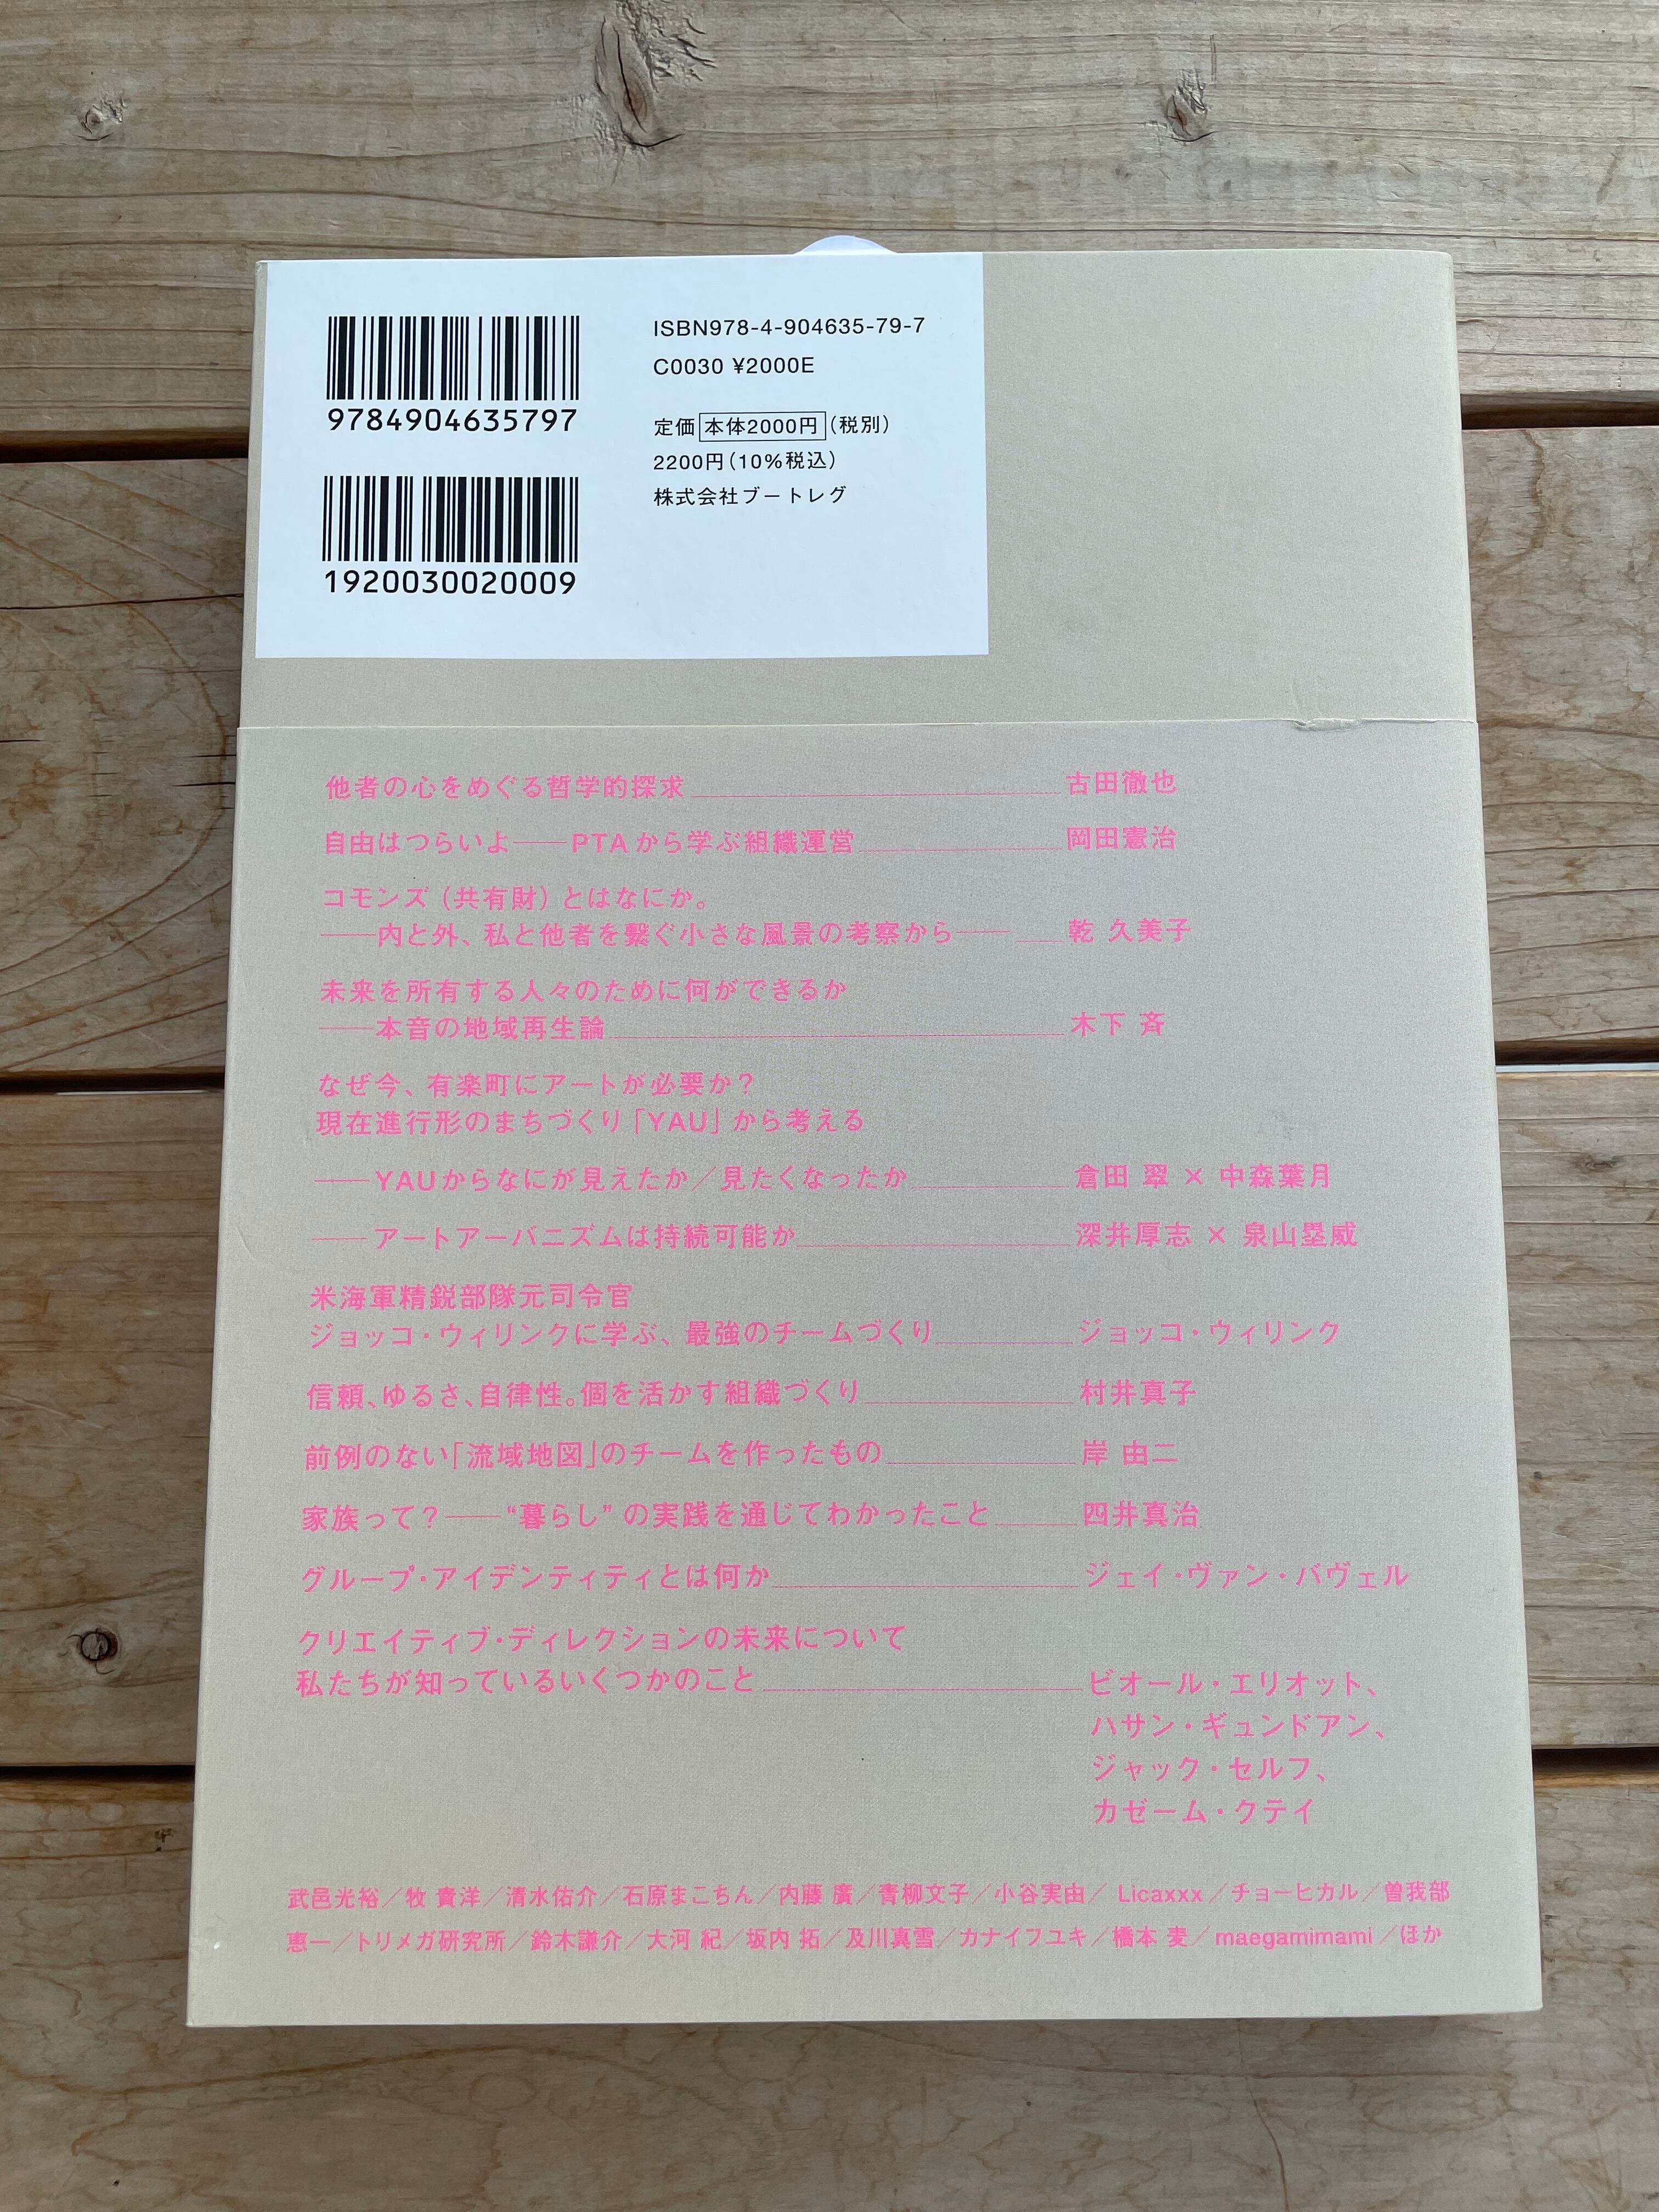 9784904635797
1920030020009
ISBN978-4-904635-79-7
C0030 ¥2000E
定価 本体2000円(税別)
2200円(10%税込)
株式会社ブートレグ
他者の心をめぐる哲学的探求 古田徹也
自由はつらいよ──PTAから学ぶ組織運営 岡田憲治
コモンズ(共有財)とはなにか。
──内と外、私と他者を繋ぐ小さな風景の考察から── 乾 久美子
未来を所有する人々のために何ができるか
──本音の地域再生論 木下 斉
なぜ今、有楽町にアートが必要か?
現在進行形のまちづくり「YAU」から考える
──YAUからなにが見えたか/見たくなったか 倉田 翠 × 中森葉月
──アートアーバニズムは持続可能か 深井厚志 × 泉山塁威
米海軍精鋭部隊元司令官
ジョッコ・ウィリンクに学ぶ、最強のチームづくり ジョッコ・ウィリンク
信頼、ゆるさ、自律性。個を活かす組織づくり 村井真子
前例のない「流域地図」のチームを作ったもの 岸 由二
家族って?──“暮らし”の実践を通じてわかったこと 四井真治
グループ・アイデンティティとは何か ジェイ・ヴァン・バヴェル
クリエイティブ・ディレクションの未来について
私たちが知っているいくつかのこと ビオール・エリオット、
ハサン・ギュンドアン、
ジャック・セルフ、
カゼーム・クテイ
武邑光裕/牧 貴洋/清水佑介/石原まこちん/内藤 廣/青柳文子/小谷実由/Licaxxx/チョーヒカル/曽我部
恵一/トリメガ研究所/鈴木謙介/大河 紀/坂内 拓/及川真雪/カナイフユキ/橋本 麦/maegamimami/ほか